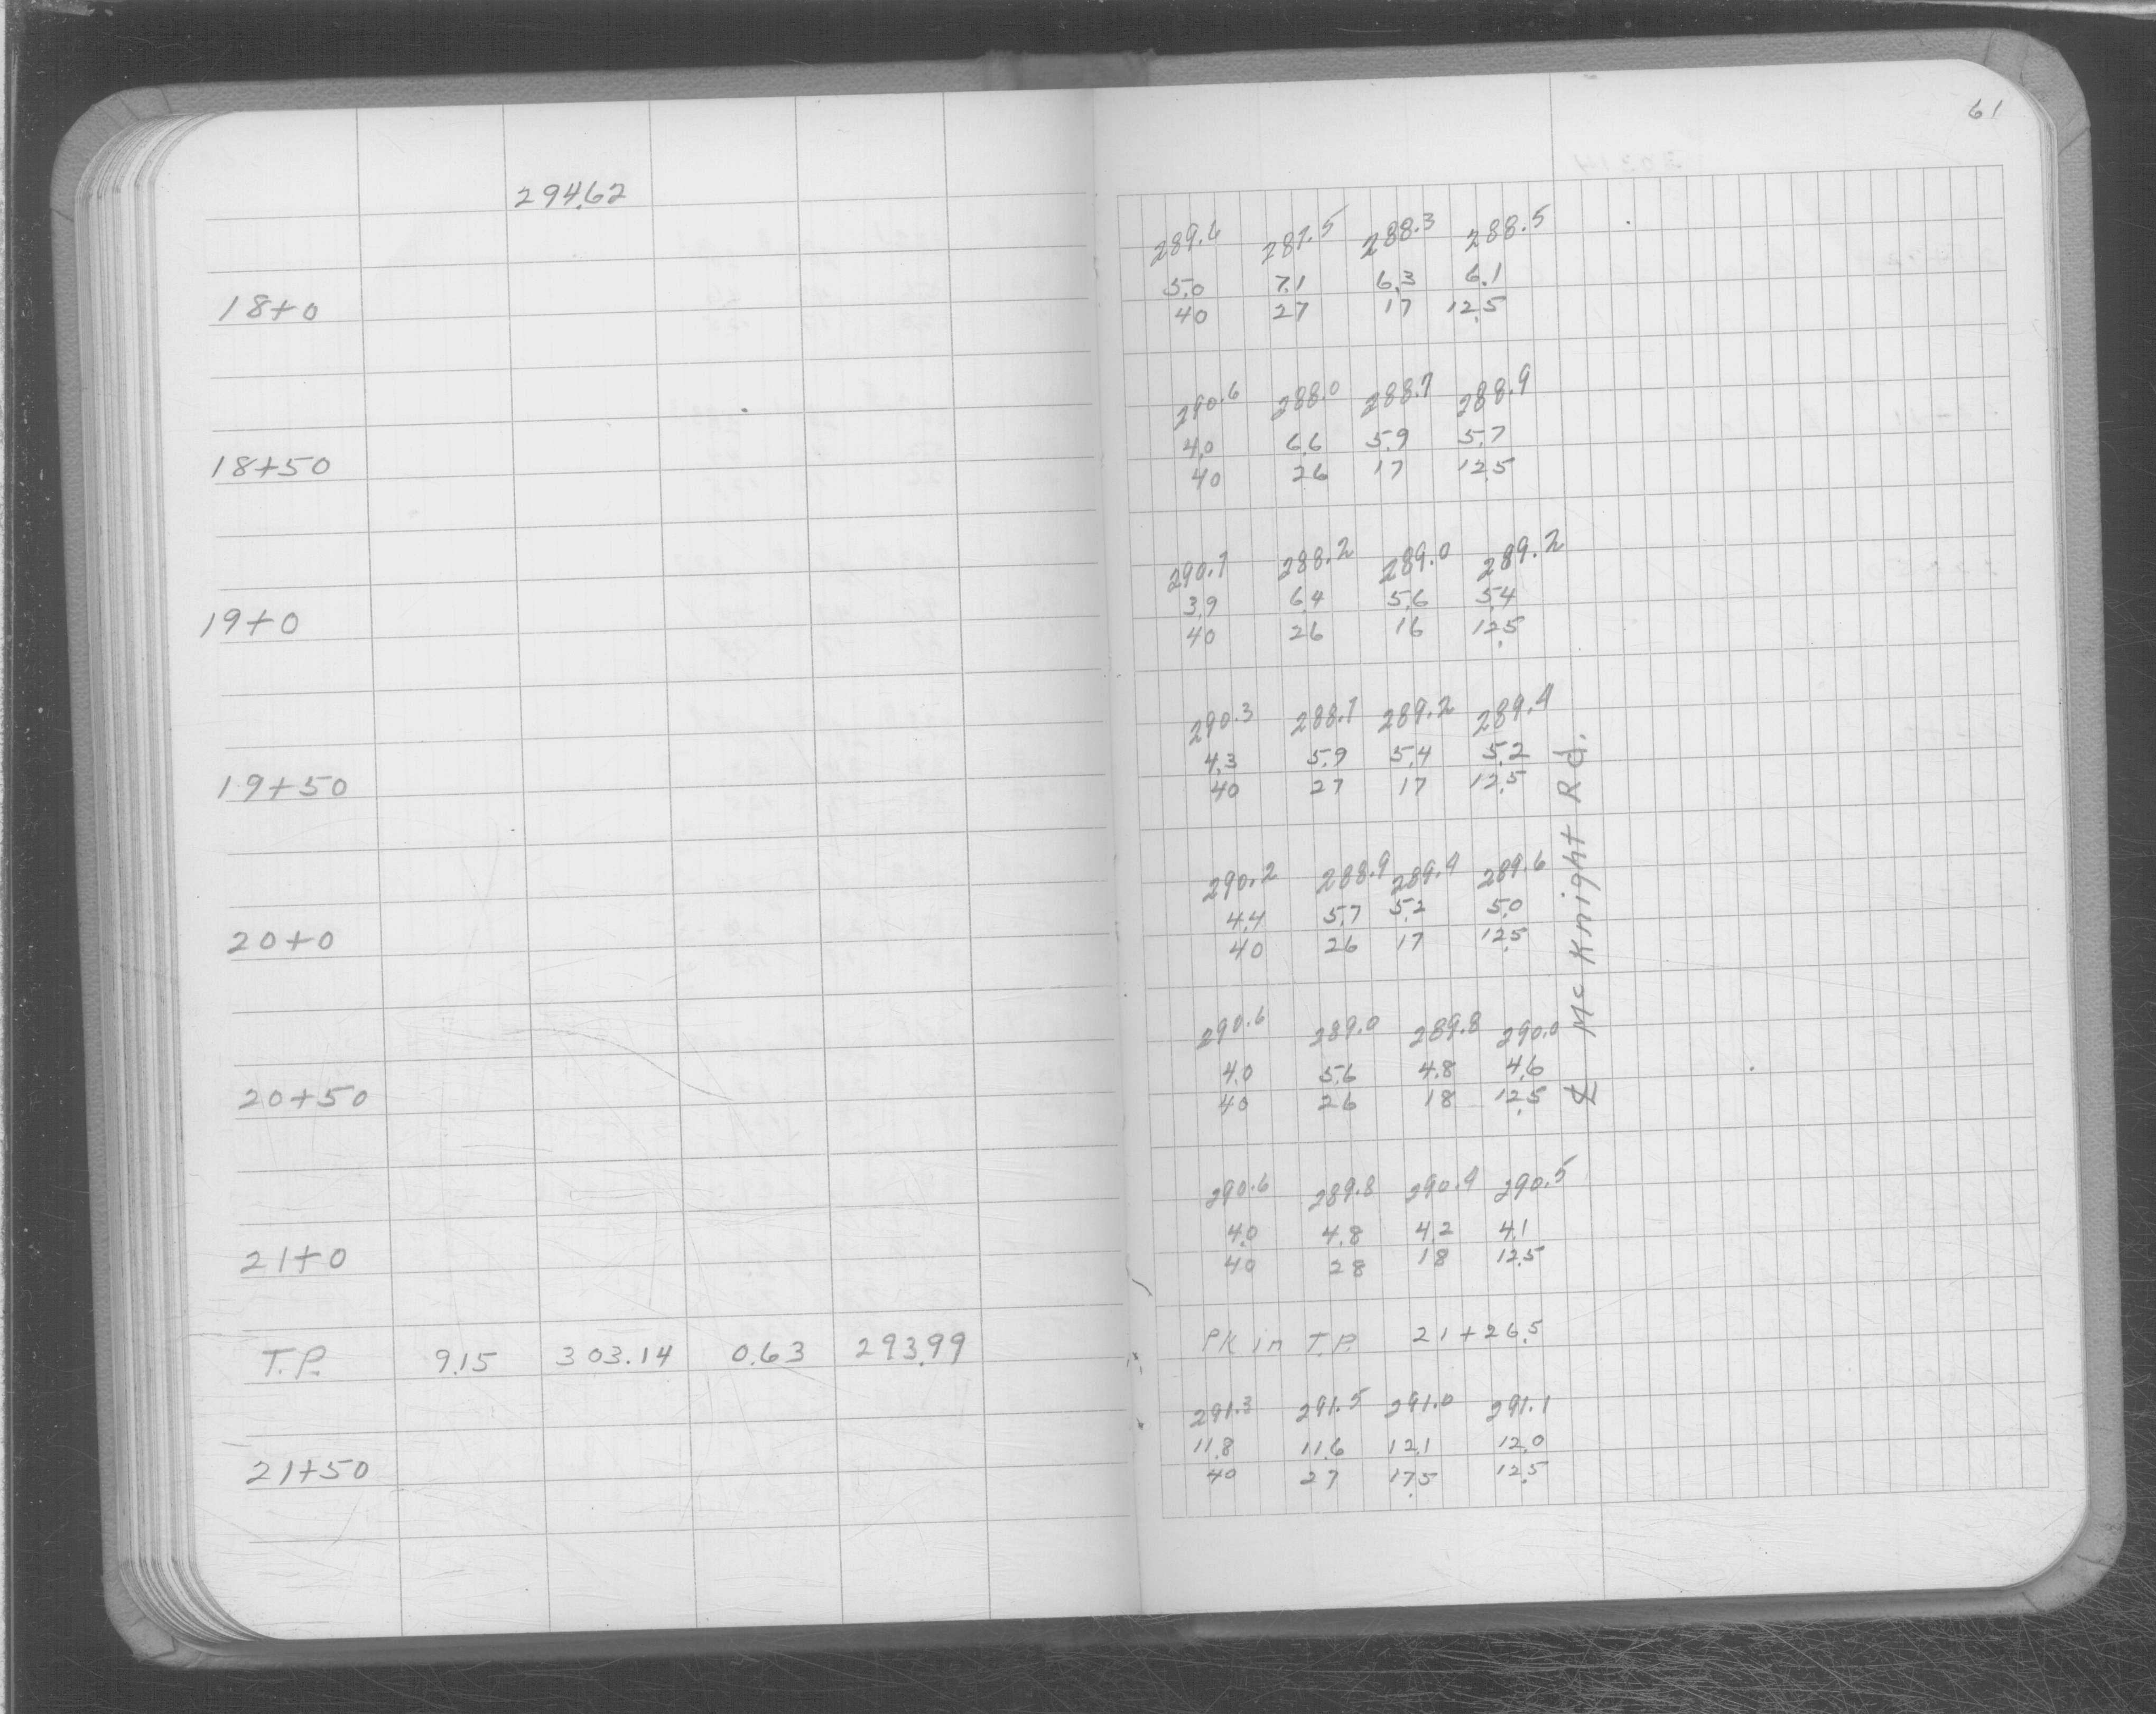 61
294.62
289.6 287.5 288.3 288.5
5.0 7.1 6.3 6.1
18+0 40 27 17 12.5
290.6 288.0 288.7 288.9
4.0 6.6 5.9 5.7
18+50 40 26 17 12.5
290.7 288.2 289.0 289.2
3.9 6.4 5.6 5.4
19+0 40 26 16 12.5
290.3 288.7 289.2 289.4
4.3 5.9 5.4 5.2
19+50 40 27 17 12.5
290.2 288.9 289.4 289.6
4.4 5.7 5.2 5.0
20+0 40 26 17 12.5
290.6 289.0 289.8 290.0
4.0 5.6 4.8 4.6
20+50 40 26 18 12.5
℄ McKnight Rd.
290.6 289.8 290.4 290.5
4.0 4.8 4.2 4.1
21+0 40 28 18 12.5
T.P. 9.15 303.14 0.63 293.99 PK in T.P. 21+26.5
291.3 291.5 291.0 291.1
11.8 11.6 12.1 12.0
21+50 40 27 17.5 12.5